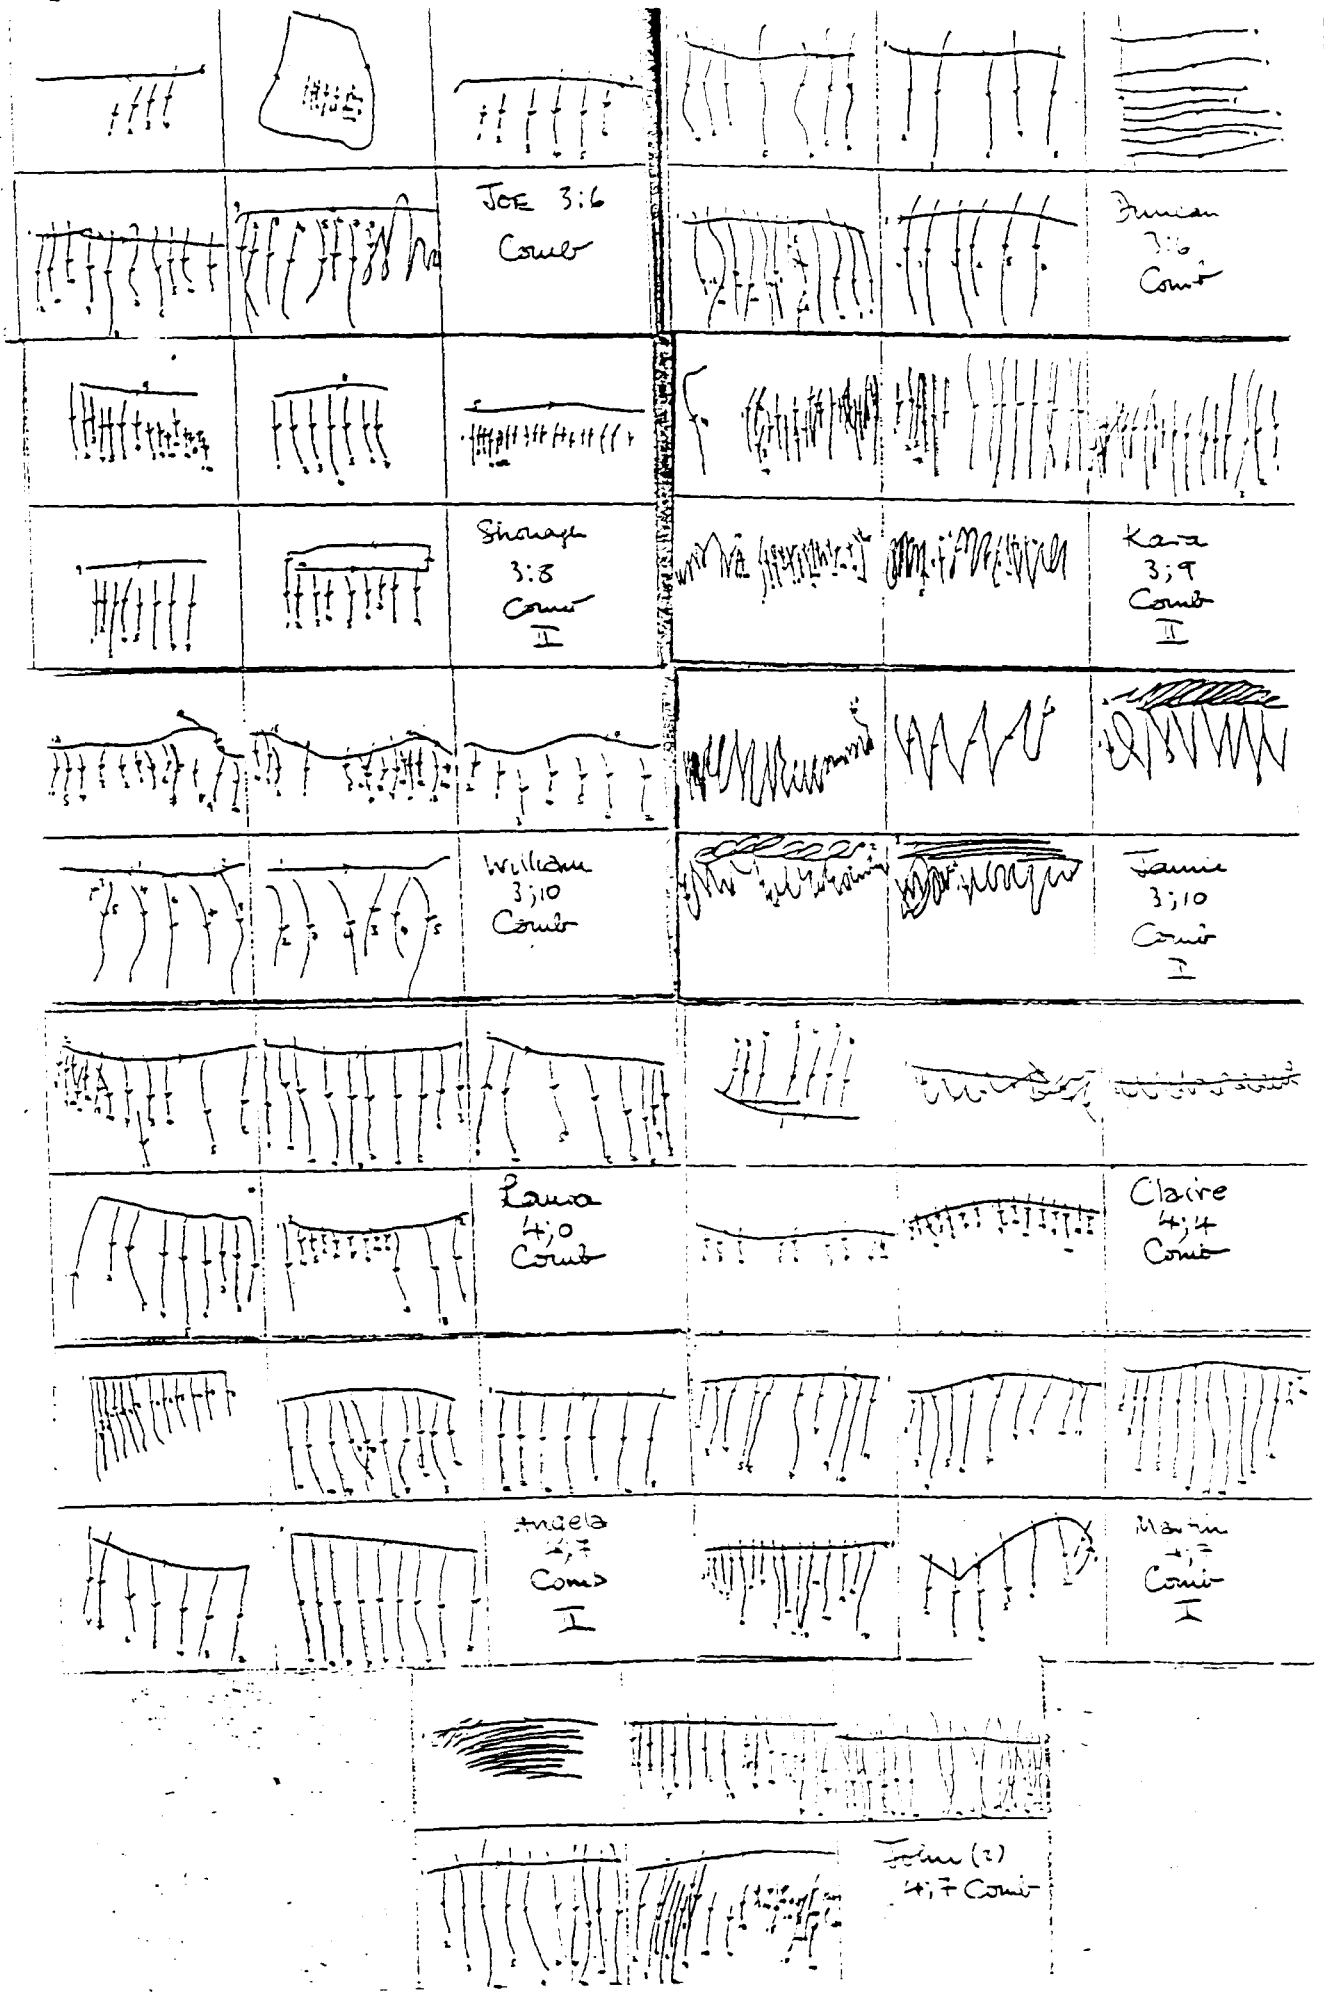 JOE 3:6
Comb
Duncan
3:6
Comb
Shonagh
3:8
Comb
II
Kara
3;9
Comb
II
William
3;10
Comb
Jamie
3;10
Comb
I
Laura
4;0
Comb
Claire
4;4
Comb
Angela
Comb
I
Martin
Comb
I
John (2)
4;7 Comb